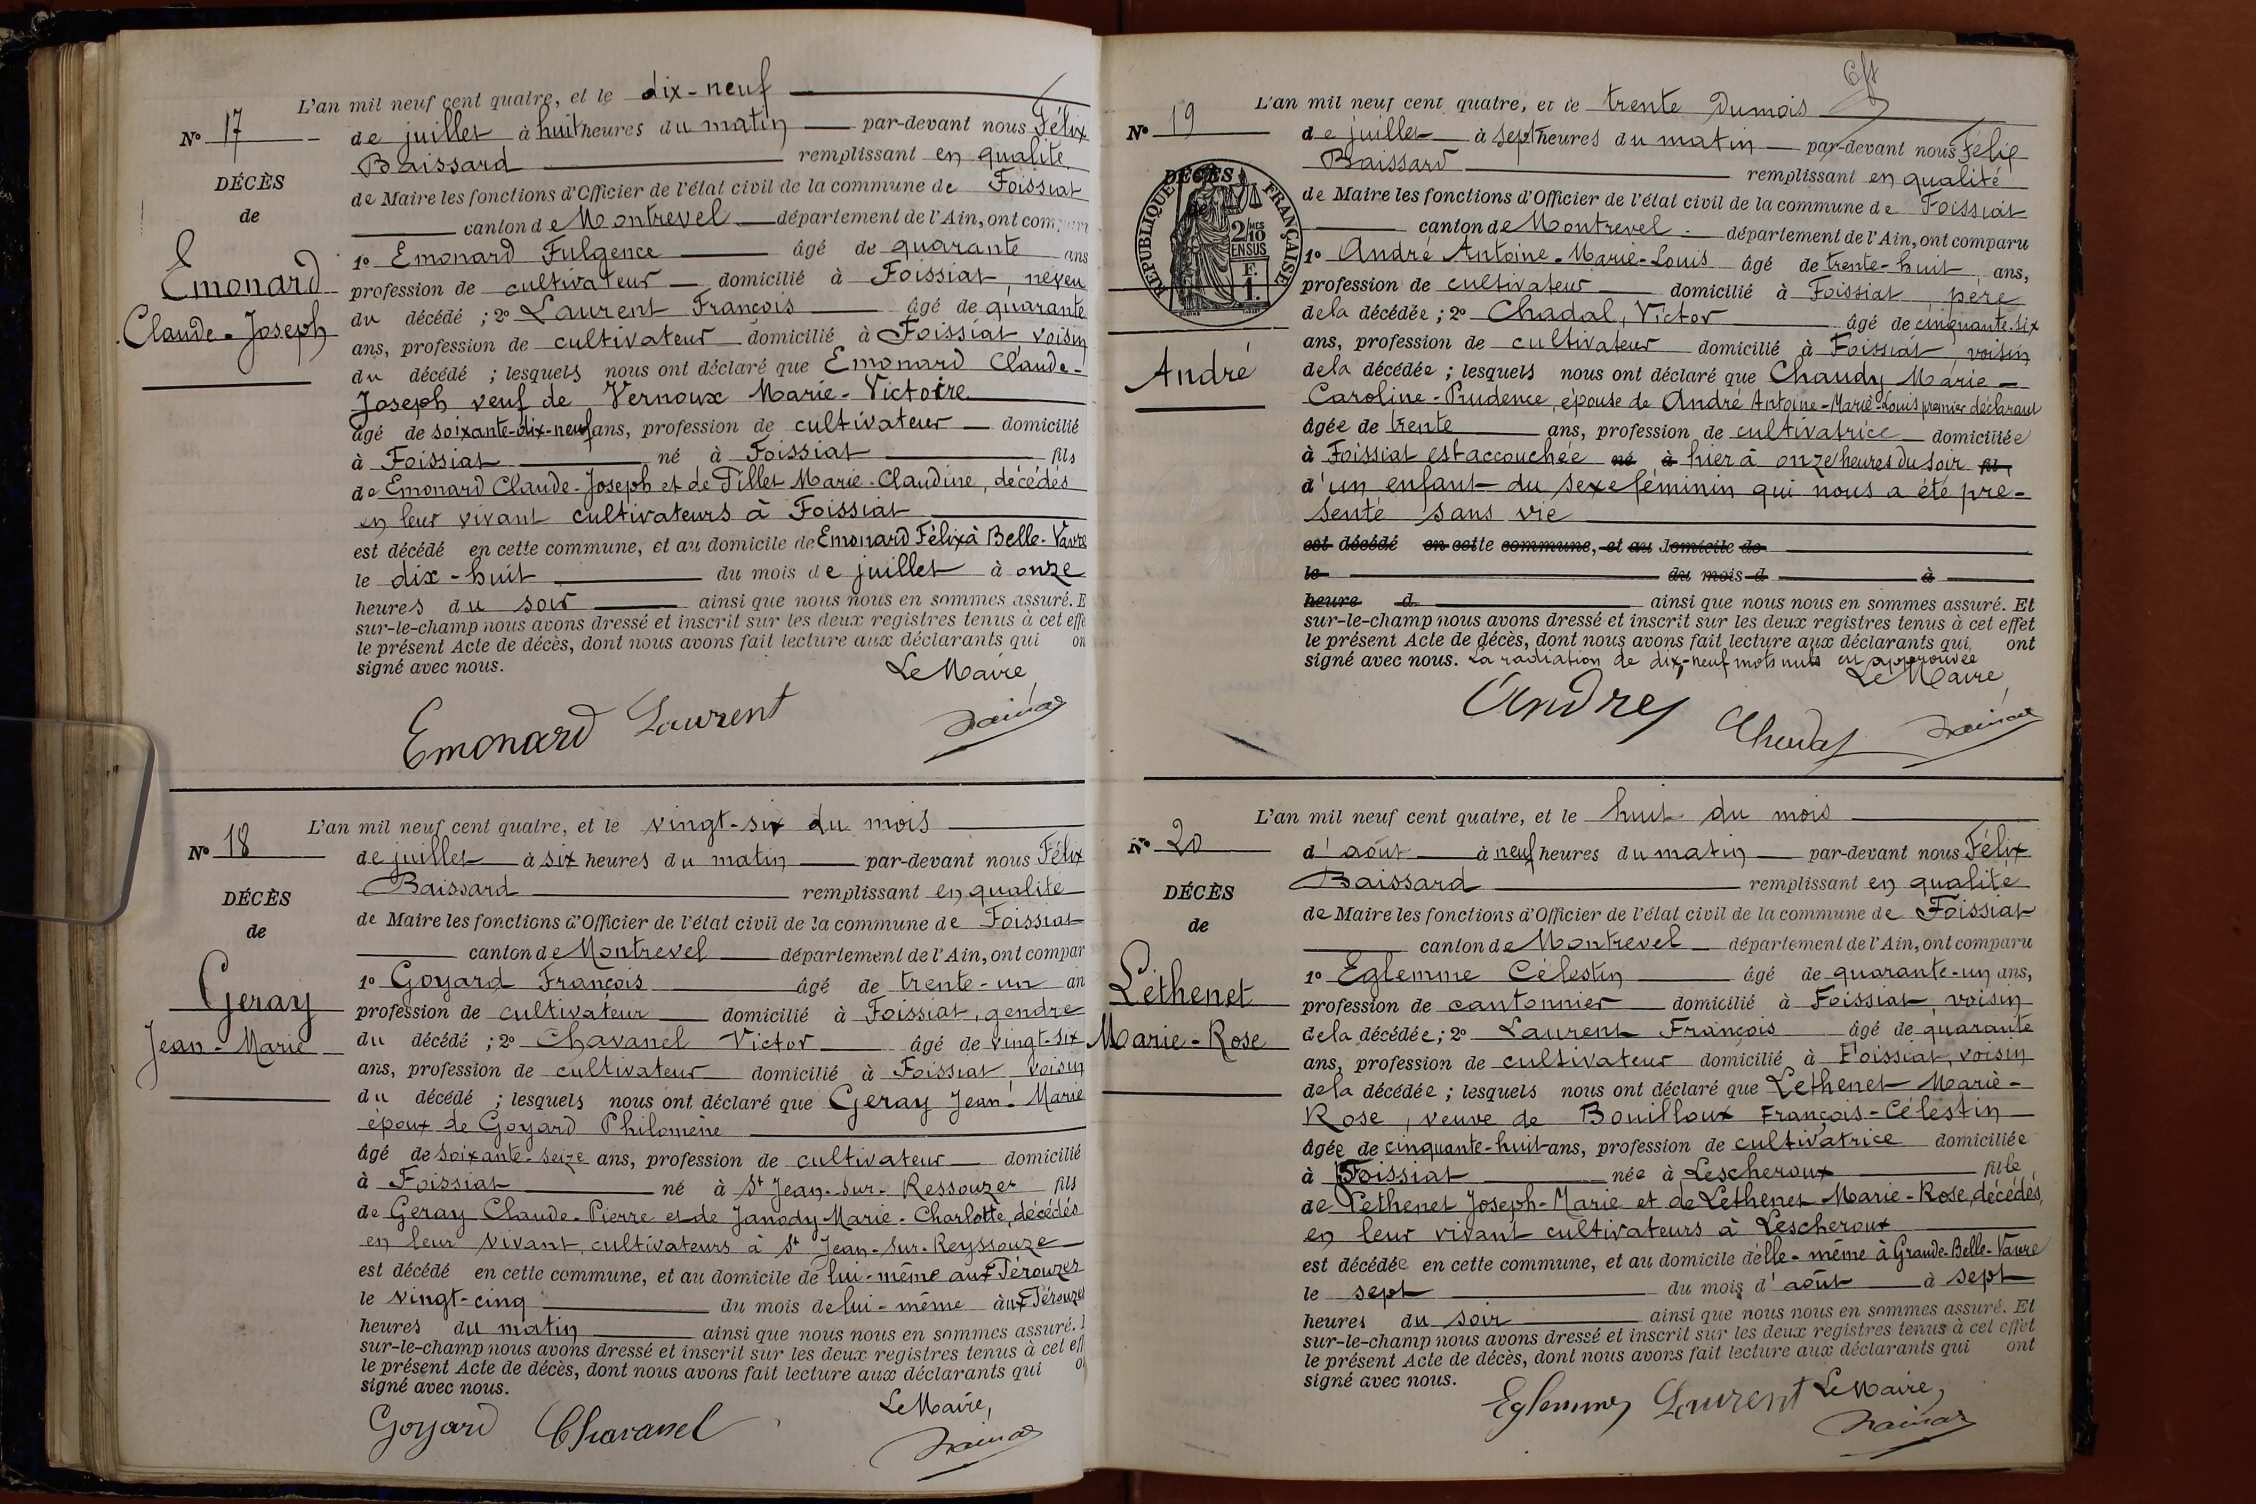 L'an mil neuf cent quatre, et le dix-neuf
No 17
de juillet à huit heures du matin par-devant nous Félix
Baissard remplissant en qualité
DÉCÈS
de Maire les fonctions d'Officier de l'état civil de la commune de Foissiat
de
canton de Montrevel département de l'Ain, ont comparu
Emonard
Claude-Joseph
1o Emonard Fulgence âgé de quarante ans
profession de cultivateur domicilié à Foissiat neveu
du décédé ; 2o Laurent François âgé de quarante
ans, profession de cultivateur domicilié à Foissiat voisin
du décédé ; lesquels nous ont déclaré que Emonard Claude-
Joseph veuf de Vernoux Marie-Victoire
âgé de soixante-dix-neuf ans, profession de cultivateur domicilié
à Foissiat né à Foissiat fils
de Emonard Claude-Joseph et de Pillet Marie-Claudine, décédés
en leur vivant cultivateurs à Foissiat
est décédé en cette commune, et au domicile de Emonard Félix à Belle-Vavre
le dix-huit du mois de juillet à onze
heures du soir ainsi que nous nous en sommes assuré. E
sur-le-champ nous avons dressé et inscrit sur les deux registres tenus à cet effe
le présent Acte de décès, dont nous avons fait lecture aux déclarants qui on
signé avec nous.
Le Maire
Emonard Laurent
L'an mil neuf cent quatre, et le vingt-six du mois
No 18
de juillet à six heures du matin par-devant nous Félix
Baissard remplissant en qualité
DÉCÈS
de Maire les fonctions d'Officier de l'état civil de la commune de Foissiat
de
canton de Montrevel département de l'Ain, ont compar
Geray
Jean-Marie
1o Goyard François âgé de trente-un an
profession de cultivateur domicilié à Foissiat, gendre
du décédé ; 2o Chavanel Victor âgé de vingt-six
ans, profession de cultivateur domicilié à Foissiat voisin
du décédé ; lesquels nous ont déclaré que Geray Jean-Marie
époux de Goyard Philomène
âgé de soixante-seize ans, profession de cultivateur domicilié
à Foissiat né à St Jean-sur-Ressouze fils
de Geray Claude-Pierre et de Janody Marie-Charlotte, décédés
en leur vivant, cultivateurs à St Jean-sur-Reyssouze
est décédé en cette commune, et au domicile de lui-même aux Pérouzes
le vingt-cinq du mois de lui-même aux Pérouzes
heures du matin ainsi que nous nous en sommes assuré.
sur-le-champ nous avons dressé et inscrit sur les deux registres tenus à cet eff
le présent Acte de décès, dont nous avons fait lecture aux déclarants qui o
signé avec nous.
Le Maire,
Goyard Chavanel
L'an mil neuf cent quatre, et le trente du mois
No 19
de juillet à sept heures du matin par-devant nous Félix
Baissard remplissant en qualité
DÉCÈS
RÉPUBLIQUE FRANÇAISE
2/10 MES
EN SUS
F.
1.
de Maire les fonctions d'Officier de l'état civil de la commune de Foissiat
canton de Montrevel département de l'Ain, ont comparu
André
1o André Antoine-Marie-Louis âgé de trente-huit ans,
profession de cultivateur domicilié à Foissiat, père
de la décédée ; 2o Chadal, Victor âgé de cinquante-six
ans, profession de cultivateur domicilié à Foissiat, voisin
de la décédée ; lesquels nous ont déclaré que Chaudy Marie-
Caroline-Prudence, épouse de André Antoine-Marie-Louis premier déclarant
âgée de trente ans, profession de cultivatrice domiciliée
à Foissiat est accouchée né à hier à onze heures du soir fil
d'un enfant du sexe féminin qui nous a été pré-
senté sans vie
est décédé en cette commune, et au domicile de
le du mois d à
heure d ainsi que nous nous en sommes assuré. Et
sur-le-champ nous avons dressé et inscrit sur les deux registres tenus à cet effet
le présent Acte de décès, dont nous avons fait lecture aux déclarants qui ont
signé avec nous. La radiation de dix-neuf mots nuls est approuvée
Le Maire,
André
L'an mil neuf cent quatre, et le huit du mois
No 20
d'août à neuf heures du matin par-devant nous Félix
Baissard remplissant en qualité
DÉCÈS
de Maire les fonctions d'Officier de l'état civil de la commune de Foissiat
de
canton de Montrevel département de l'Ain, ont comparu
Léthenet
Marie-Rose
1o Eglemme Célestin âgé de quarante-un ans,
profession de cantonnier domicilié à Foissiat, voisin
de la décédée ; 2o Laurent François âgé de quarante
ans, profession de cultivateur domicilié à Foissiat, voisin
de la décédée ; lesquels nous ont déclaré que Lethenet Marie-
Rose, veuve de Bouilloux François-Célestin
âgée de cinquante-huit ans, profession de cultivatrice domiciliée
à Foissiat née à Lescheroux fille
de Pethenet Joseph-Marie et de Lethenet Marie-Rose, décédés,
en leur vivant cultivateurs à Lescheroux
est décédée en cette commune, et au domicile d'elle-même à Grande-Belle-Vavre
le sept du mois d'août à sept
heures du soir ainsi que nous nous en sommes assuré. Et
sur-le-champ nous avons dressé et inscrit sur les deux registres tenus à cet effet
le présent Acte de décès, dont nous avons fait lecture aux déclarants qui ont
signé avec nous.
Eglemme Laurent Le Maire,